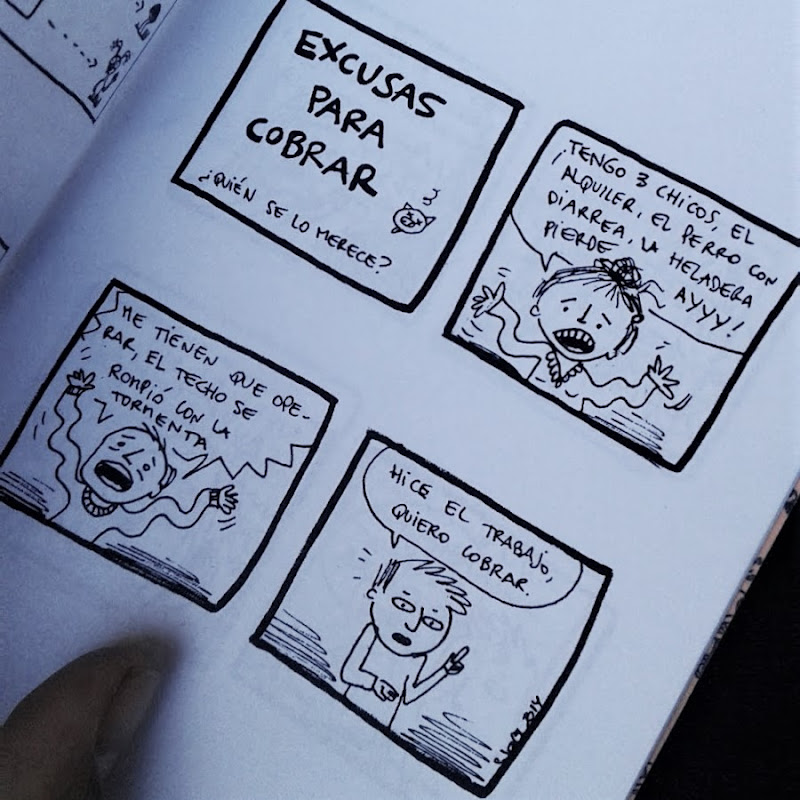 EXCUSAS
PARA
COBRAR
¿QUIÉN SE LO MERECE?
¡TENGO 3 CHICOS, EL
ALQUILER, EL PERRO CON
DIARREA, LA HELADERA
PIERDE
AYYY!
ME TIENEN QUE OPE-
RAR, EL TECHO SE
ROMPIÓ CON LA
TORMENTA
HICE EL TRABAJO,
QUIERO COBRAR.